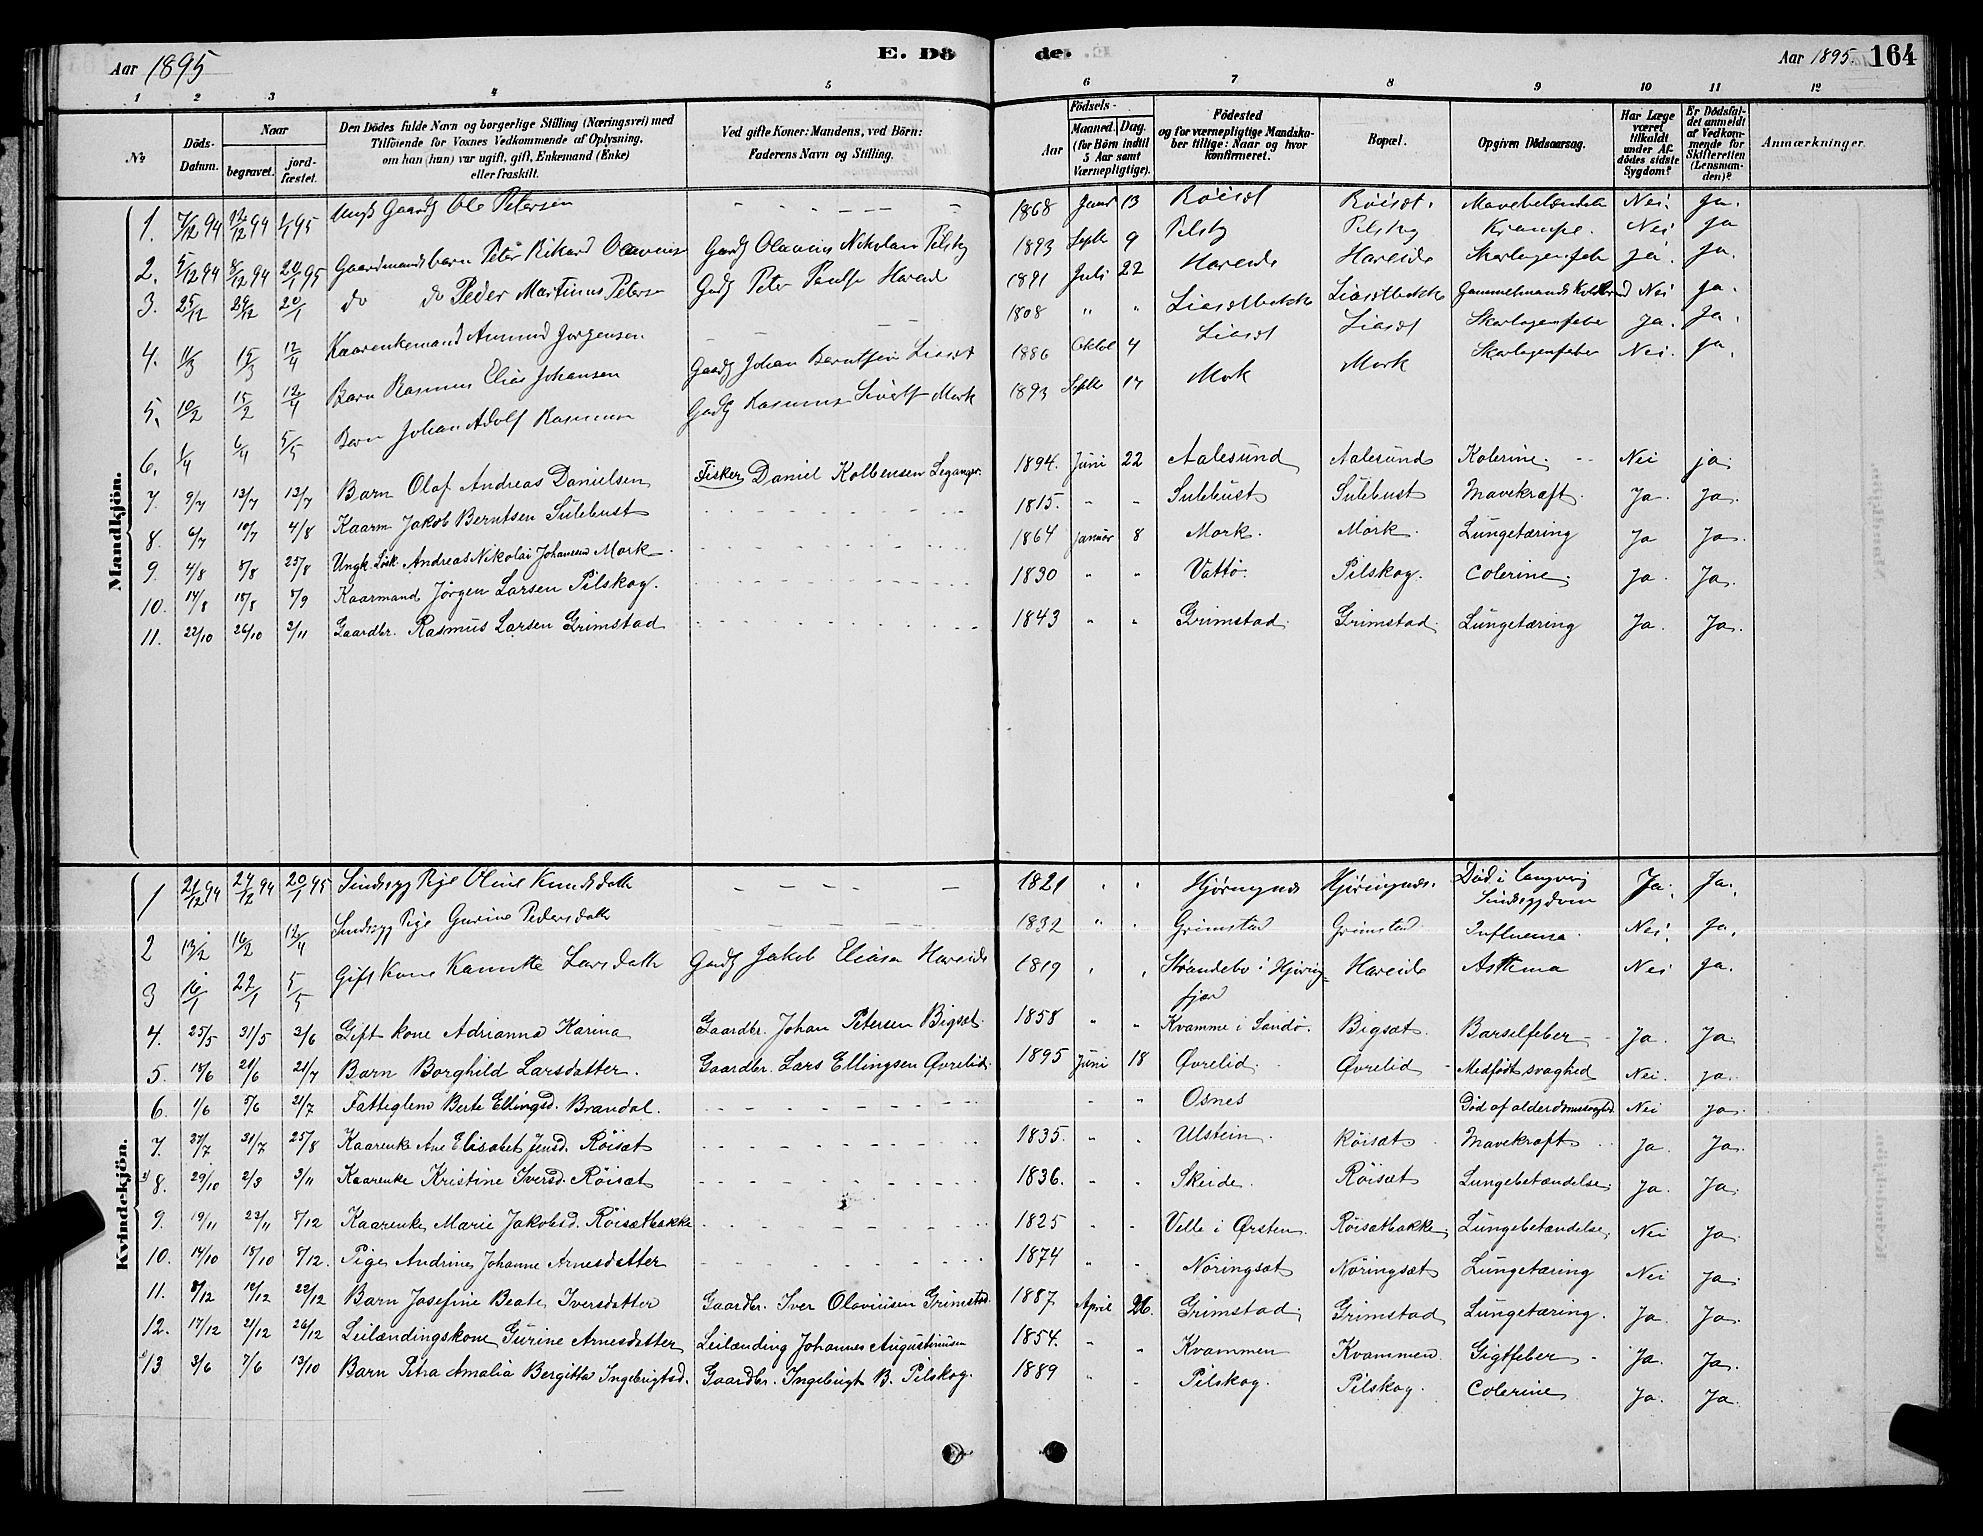 Aar 1895 E. Dö
de. Aar 1895. 164
1 2 3 4 5
6 7 8 9 10 11 12
No Döds-Datum. Naar begravet. jord-fæstet. Den Dödes fulde Navn og borgerlige Stilling (Næringsvei) med Tilföiende for Voxnes Vedkommende af Oplysning, om han (hun) var ugift, gift, Enkemand (Enke) eller fraskilt. Ved gifte Koner: Mandens, ved Börn: Faderens Navn og Stilling.
Födsels- Aar Maaned. Dag. (for Börn indtil 5 Aar samt Værnepligtige). Födested og for værnepligtige Mandskaber tillige: Naar og hvor konfirmeret. Bopæl. Opgiven Dödsaarsag. Har Læge været tilkaldt under Afdödes sidste Sygdom? Er Dödsfaldet anmeldt af Vedkommende for Skifteretten (Lensmanden)? Anmærkninger.
Mandkjön.
1. 7/12 94 12/12 94 1/1 95 Ole Petersen - - - - 1868 Janr 13 Röisæt Röisæt. Nei. Ja.
2. 5/12 94 8/12 94 20/1 95 Gaardmandsbarn Peter Rikard Olavius Gaardbr Olavius Nikolai Pilsky 1893 Septbr 9 Pilsky Pilsky Krampe. Nei Ja
3. 25/12 29/12 20/1 do do Peder Martinus Peters Gbr Peter Pauls Hareid 1891 Juli 22 Hareide Hareide Skarlagensfeber Ja. Ja.
4. 11/3 15/3 12/4 Kaarenkemand Amund Jørgensen - - - 1808 " " Liasætbakke Liasætbakke Nei Ja.
5. 10/2 15/2 12/4 Barn Rasmus Elias Johansen Gaardbr Johan Berntsen Liasæt 1886 Oktob 4 Liasæt Liasæt Skarlagensfeber Ja. Ja.
6. 1/4 6/4 5/5 Barn Johan Adolf Rasmussen Rasmus Mork 1893 Septbr 17 Mork Mork Skarlagensfeber Nei. Ja.
7. 9/7 13/7 13/7 Barn Olaf Andreas Danielsen Fisker Daniel Kolbensen Leganger. 1894. Juni 22 Aalesund Aalesund Kolerine. Nei ja.
8. 6/7 10/7 4/8 Kaarm Jakob Berntsen Sülebust - - - 1815. " " Sülebust Sülebust Mavekræft. Ja. Ja.
9. 4/8 8/8 25/8 Ungk. Løsk Andreas Nikolai Johansen Mork. - - - 1864 januar 8 Mork. Mork. Lungetæring Ja Ja.
10. 14/8 18/8 8/9 Kaarmand Jørgen Larsen Pilskog. - - - 1830 " " Vattö. Pilskog. Colerine. Ja. Ja.
11. 22/10 26/10 3/11 Gaardbr. Rasmus Larsen Grimstad - - - 1843 " " Grimstad. Grimstad. Lungetæring Ja. Ja.
Kvindekjön.
1 21/12 94 24/12 94 20/1 95 Sindssyg Pige Oline Knudsdatter - - - 1821 " " Hjørungnes Hjørungnes. Død i langvarig Sindssygdom Ja. Ja.
2 13/2 16/2 12/4 Sindssyg Pige Gurine Pedersdatter - - - 1832 " " Grimstad Grimstad Influensa. Nei. Ja.
3 16/1 27/1 5/5 Gift Kone Larsdatter Gaardbr Jakob Eliasen Hareide 1819 " " Strandebø i Hjöring-fjor Hareide Asthma Nei Ja.
4. 25/5 31/5 2/6 Gift kone Adrianna Karina Gaardbr. Johan Petersen Bigsæt. 1858 " " Kvamme i Sandö. Bigsæt. Barselfeber - Ja. Ja
5. 18/6 21/6 21/7 Barn Borghild Larsdatter. Gaardbr. Lars Ellingsen Øvrelid. 1895 Juni 18 Øvrelid. Øvrelid - Medfödt svaghed Nei. ja.
6. 1/6 5/6 21/7 Fattiglem Berte Ellingsd. Brandal. - - - " Osnes Død af alderdomssvaghed Nei ja.
7. 27/7 31/7 25/8 Kaarenke Ane Elisabet Jensd. Röisæt - - - 1835. " " Ulstein. Röisæt Mavekræft. Ja. Ja.
8. 29/10 2/3 3/11 Kaarenke Kristine Iversd. Röisæt - - - 1836. " " Skeide. Röisæt Lungebetændelse. Ja. Ja.
9. 19/11 23/11 8/12 Kaarenke Marie Jakobsd. Röisætbakke - - - 1825 " " Velle i Ørsten. Röisætbakke. Lungebetændelse. Nei Ja.
10. 14/10 18/10 8/12. Pige Andrine Johanne Arnesdatter - - - 1874 " " Nöringsæt Nöringsæt Lungetæring Nei Ja.
11. 8/12 12/12 22/12 Barn Josefine Beate Iversdatter Gaardbr. Iver Oloviusen Grimstad. 1887 April 26. Grimstad. Grimstad Lungetæring. Ja. Ja.
12. 17/12 21/12 26/12 Leilændingskone Gurine Arnesdatter Leilænding Johannes Augustinusen 1854. " " Kvammen Kvammen Gigtfeber - Ja. Ja.
13 3/6 7/6 13/10 Barn Petra Amalia Bergitta Ingebrigtsd. Gaardbr. Ingebrigt B. Pilskog. 1889 " " Pilskog. Pilskog. Colerine Ja. Ja.